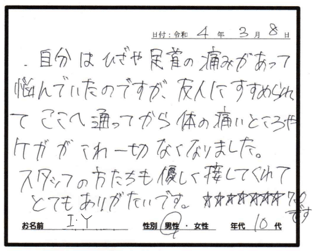 日付：令和 4 年 3 月 8 日
．自分はひざや足首の痛みがあって
悩んでいたのですが、友人にすすめられ
て ここへ通ってから体の痛いところや
ケガがこれ一切なくなりました。
スタッフの方たちも優しく接してくれて
とてもありがたいです。 ☆☆☆☆☆☆☆
です
お名前 I.Y 性別 男性・女性 年代 10 代